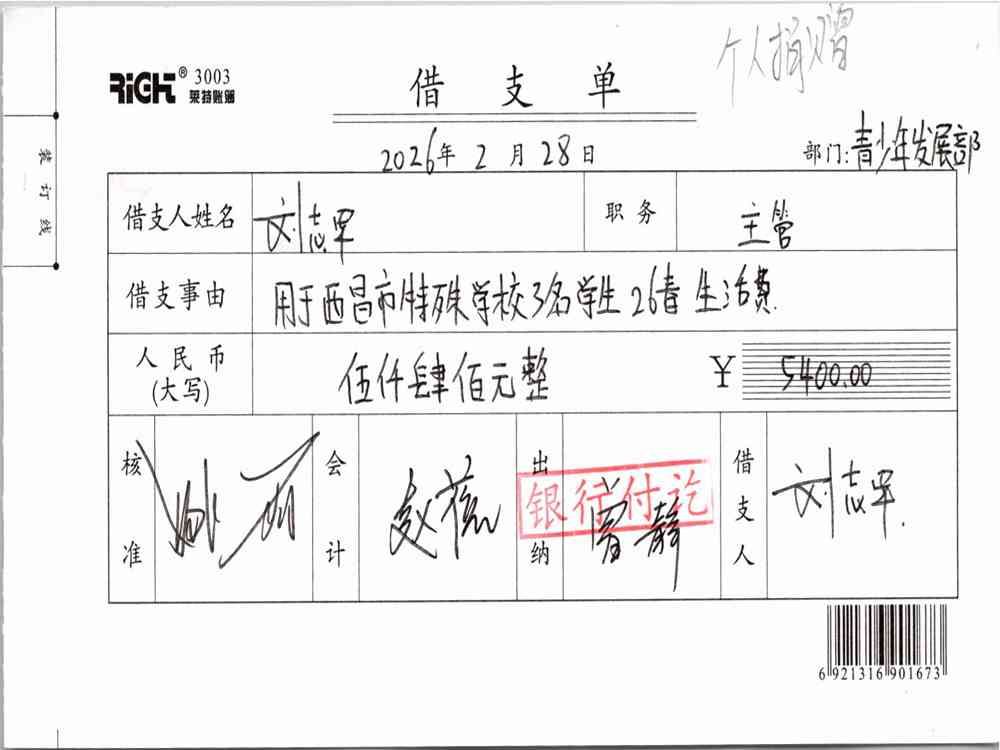 个人捐赠
RiGHT® 3003
莱特账簿
借支单
2026年2月28日
部门:青少年发展部
装订线
借支人姓名 刘志军 职务 主管
借支事由 用于西昌市特殊学校3名学生26春生活费
人民币(大写) 伍仟肆佰元整 ¥ 5400.00
核准 会计 赵 出纳 曾静 借支人 刘志军.
银行付讫
6 921316 901673